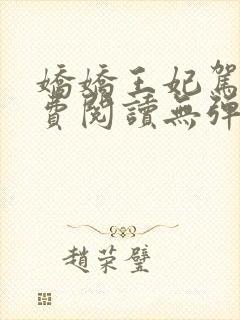 嬌嬌王妃駕
費閱讀無彈
趙荣璧